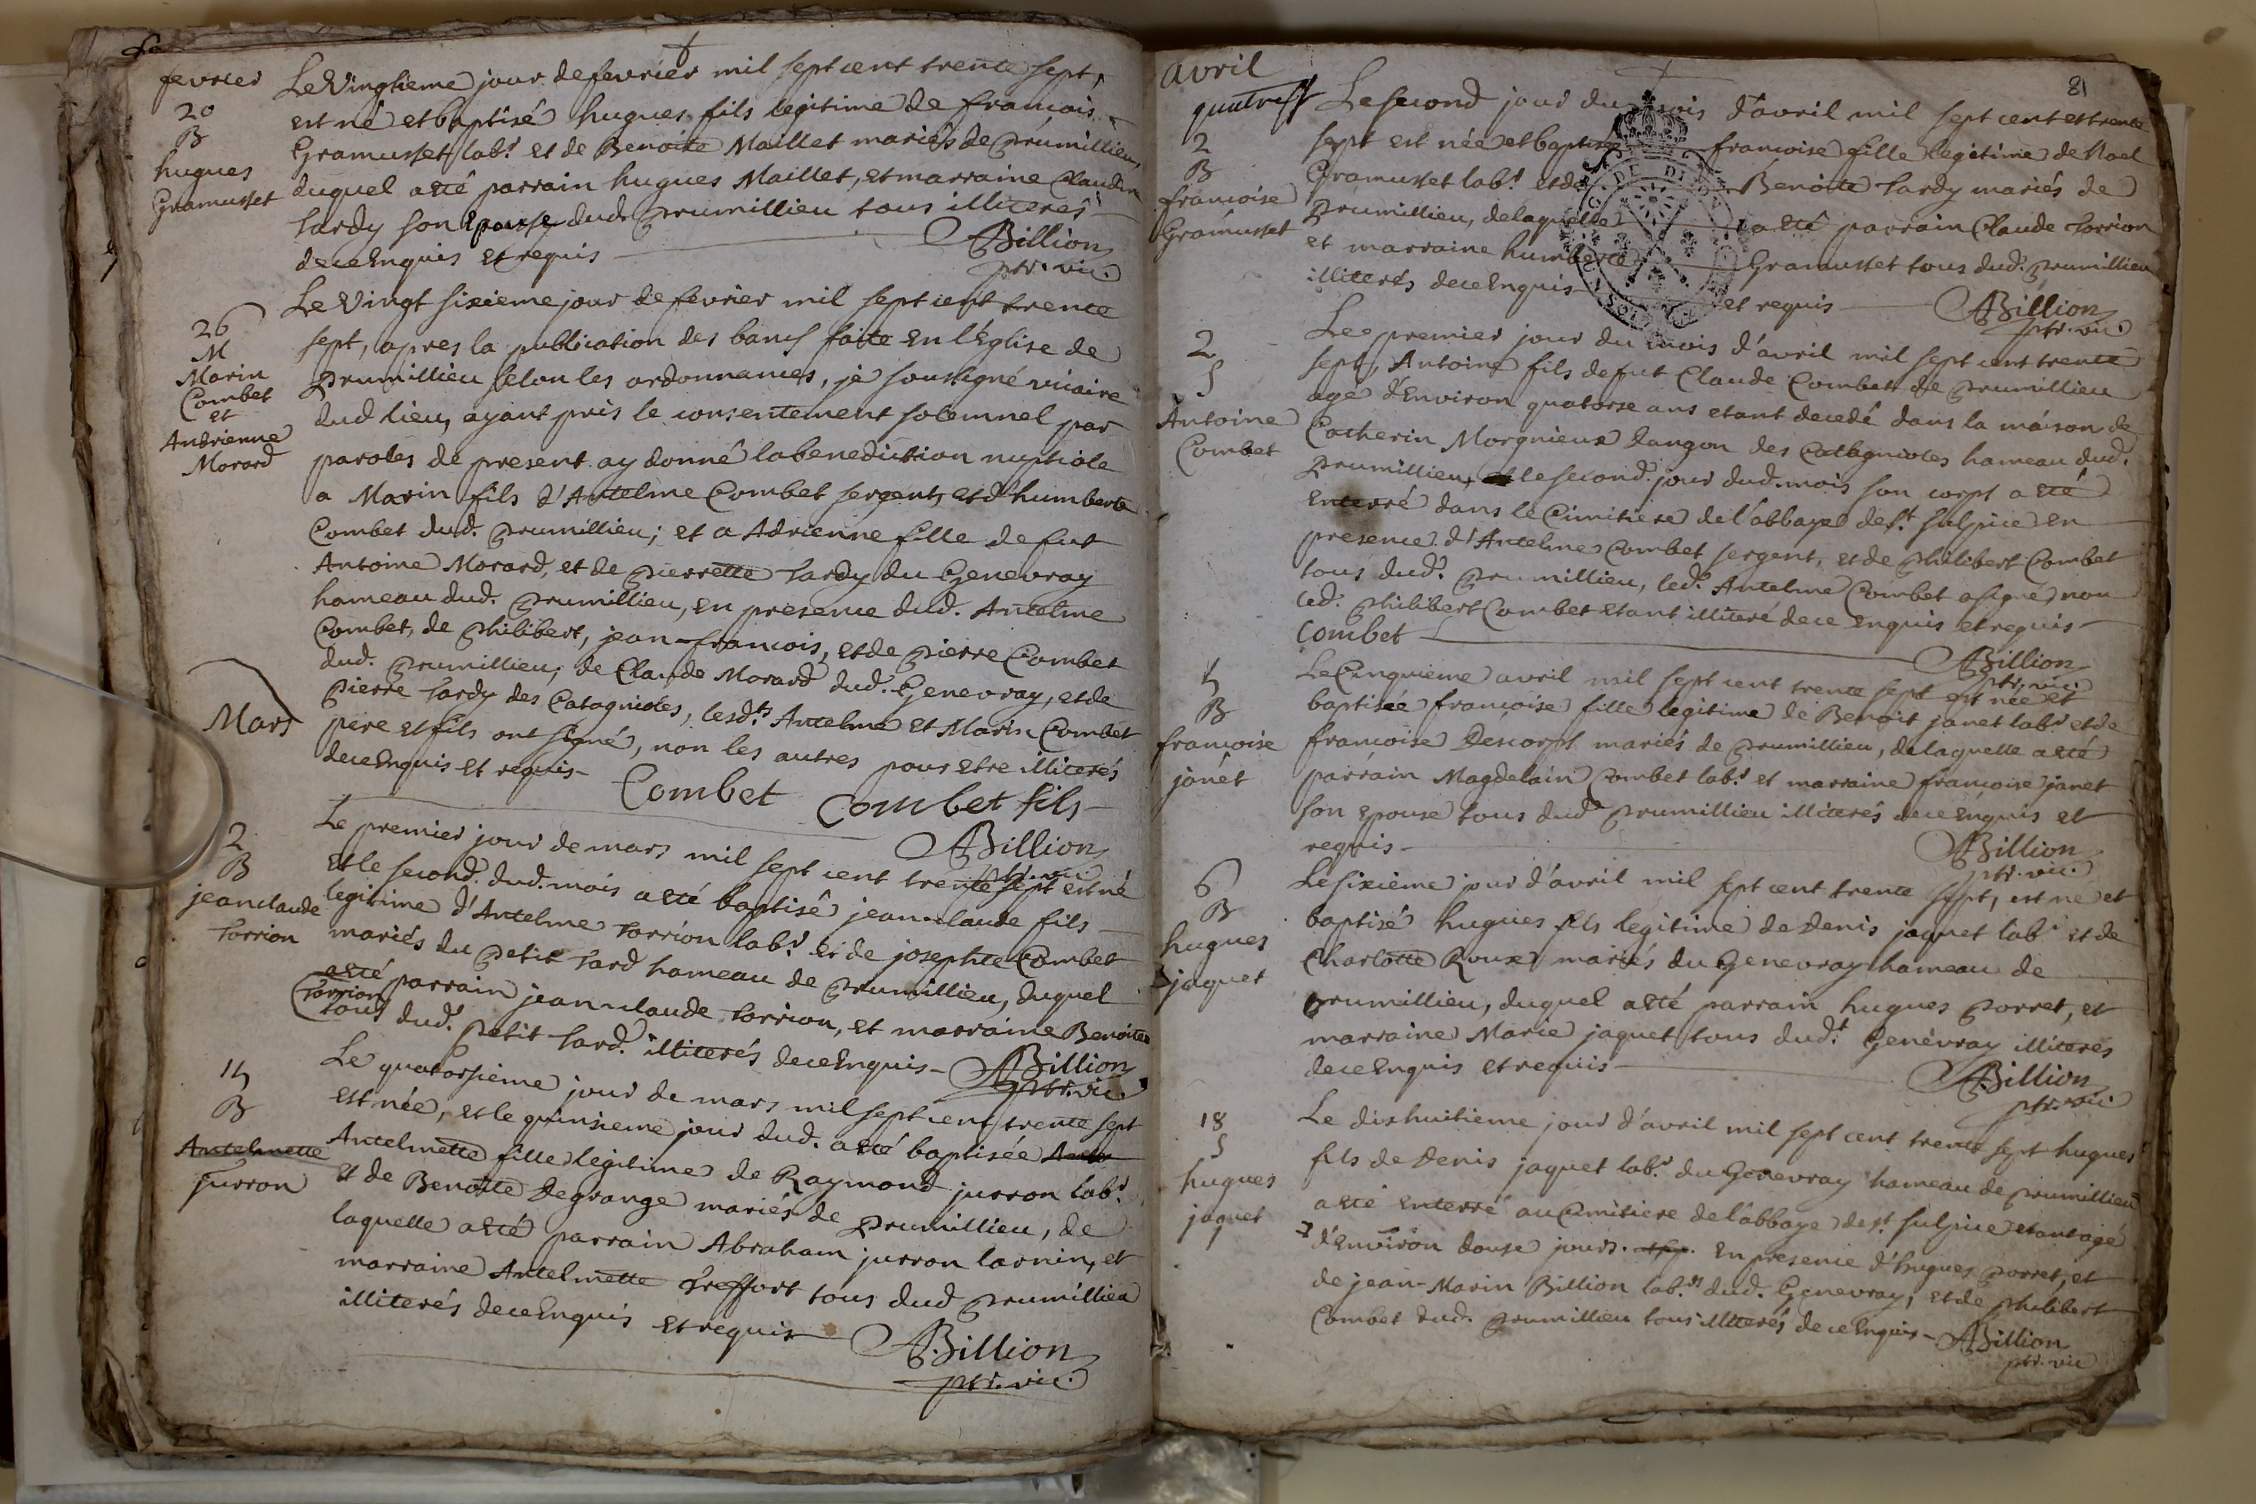 fevrier
20
B
hugues
Gramusset
Le Vingtieme jour de fevrier mil sept cent trente sept,
est né et baptisé hugues fils legitime de francois
Gramusset lab.r et de Benoite Maillet mariés de prumillieu,
duquel a eté parrain hugues Maillet, et marraine Claudine
tardy son Epouse dud. prumillieu tous illiterés
de ce Enquis et requis
Billion
ptr. vic
26
M
Marin
Combet
et
Andrienne
Morard
Le Vingt sixieme jour de fevrier mil sept cent trente
sept, apres la publication des bancs faite en l'Eglise de
prumillieu selon les ordonnances, je soussigné vicaire
dud lieu, ayant pris le consentement solemnel par
paroles de present ay donné la benediction nuptiale
a Marin fils d'Antelme Combet sergent, et d'humberte
Combet dud. prumillieu; et a Adrienne fille de fut
Antoine Morard, et de pierrette tardy du Genevray
hameau dud. prumillieu, en presence dud. Antelme
Combet, de philibert, jean-francois, et de pierre Combet
dud. prumillieu, de Claude Morard dud. Genevray, et de
pierre tardy des Catagnioles, lesd.ts Antelme et Marin Combet
pere et fils ont signé, non les autres pour etre illiterés
de ce Enquis et requis
Combet Combet fils
Billion
ptr. vic.
Mars
2
B
jean claude
torrion
Le premier jour de mars mil sept cent trente sept est né
et le second dud. mois a eté baptisé jean-claude fils
legitime d'Antelme torrion lab.r et de josephte Combet
mariés du petit tard hameau de prumillieu, duquel
a eté parrain jean-claude torrion, et marraine Benoite
torrion
tous dud.t petit tard. illiterés de ce Enquis
Billion
ptr. vic
14
B
Antelmette
jurron
Le quatorsieme jour de mars mil sept cent trente sept
est née, et le quinsieme jour dud. a eté baptisée
Antelmette fille legitime de Raymond jurron lab.r
et de Benoite Degrange mariés de prumillieu, de
laquelle a eté parrain Abraham jurron larnin, et
marraine Antelmette treffort tous dud prumillieu
illiterés de ce Enquis et requis
Billion
ptr. vic.
81
avril
2
B
francoise
Gramusset
Le second jour du mois d'avril mil sept cent et trente
sept est née et baptisée francoise fille legitime de Noel
Gramusset lab.r et de Benoite tardy mariés de
prumillieu, de laquelle a eté parrain Claude torrion
et marraine humberte Gramusset tous dud. prumillieu
illiterés de ce Enquis et requis
Billion
ptr. vic.
2
S
Antoine
Combet
Le premier jour du mois d'avril mil sept cent trente
sept, Antoine fils de fut Claude Combet de prumillieu
agé d'Environ quatorse ans etant decedé dans la maison de
Catherin Morgnieux dangon des Catagnioles hameau dud.
prumillieu, et le second jour dud. mois son corps a eté
Enterré dans le Cimitiere de l'abbaye de s.t sulpice en
presence d'Antelme Combet sergent, et de philibert Combet
tous dud.t prumillieu, led.t Antelme Combet a signé non
led. philibert Combet etant illiteré de ce enquis et requis
Combet
Billion
ptr. vic.
5
B
francoise
janet
Le Cinquieme avril mil sept cent trente sept est née et
baptisée francoise fille legitime de Benoit janet lab.r et de
francoise Descorps mariés de prumillieu, de laquelle a eté
parrain Magdelain Combet lab.r et marraine francoise janet
son epouse tous dud prumillieu illiterés de ce enquis et
requis
Billion
ptr. vic.
6
B
hugues
jaquet
Le sixieme jour d'avril mil sept cent trente sept, est né et
baptisé hugues fils legitime de denis jaquet lab.r et de
Charlotte Roux mariés du Genevray hameau de
prumillieu, duquel a eté parrain hugues porret, et
marraine Marie jaquet tous dud.t Genevray illiterés
de ce Enquis et requis
Billion
ptr. vic.
18
S
hugues
jaquet
Le dix huitieme jour d'avril mil sept cent trente sept hugues
fils de denis jaquet lab.r du Genevray hameau de prumillieu
a eté enterré au Cimitiere de l'abbaye de s.t sulpice etant agé
d'Environ douse jours. En presence d'hugues porret, et
de jean-Marin Billion lab.rs dud. Genevray, et de philibert
Combet dud. prumillieu tous illiterés de ce Enquis
Billion
ptr. vic